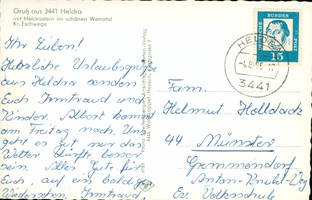 Gruß aus 3441 Heldra
mit Heldrastein im schönen Werratal
Kr. Eschwege
Ihr Lieben!
Herzliche Urlaubsgrüße
aus Heldra senden
Euch Irmtraud und
Kinder. Albert kommt
am Freitag nach. Uns
geht es gut nur das
Wetter dürfte besser
sein. Alles Gute für
Euch, auf ein baldiges
Wiedersehen, Irmtraud,
DEUTSCHE BUNDESPOST
15
3441
Fam.
Helmut
44 Münster
Ev. Volksschule